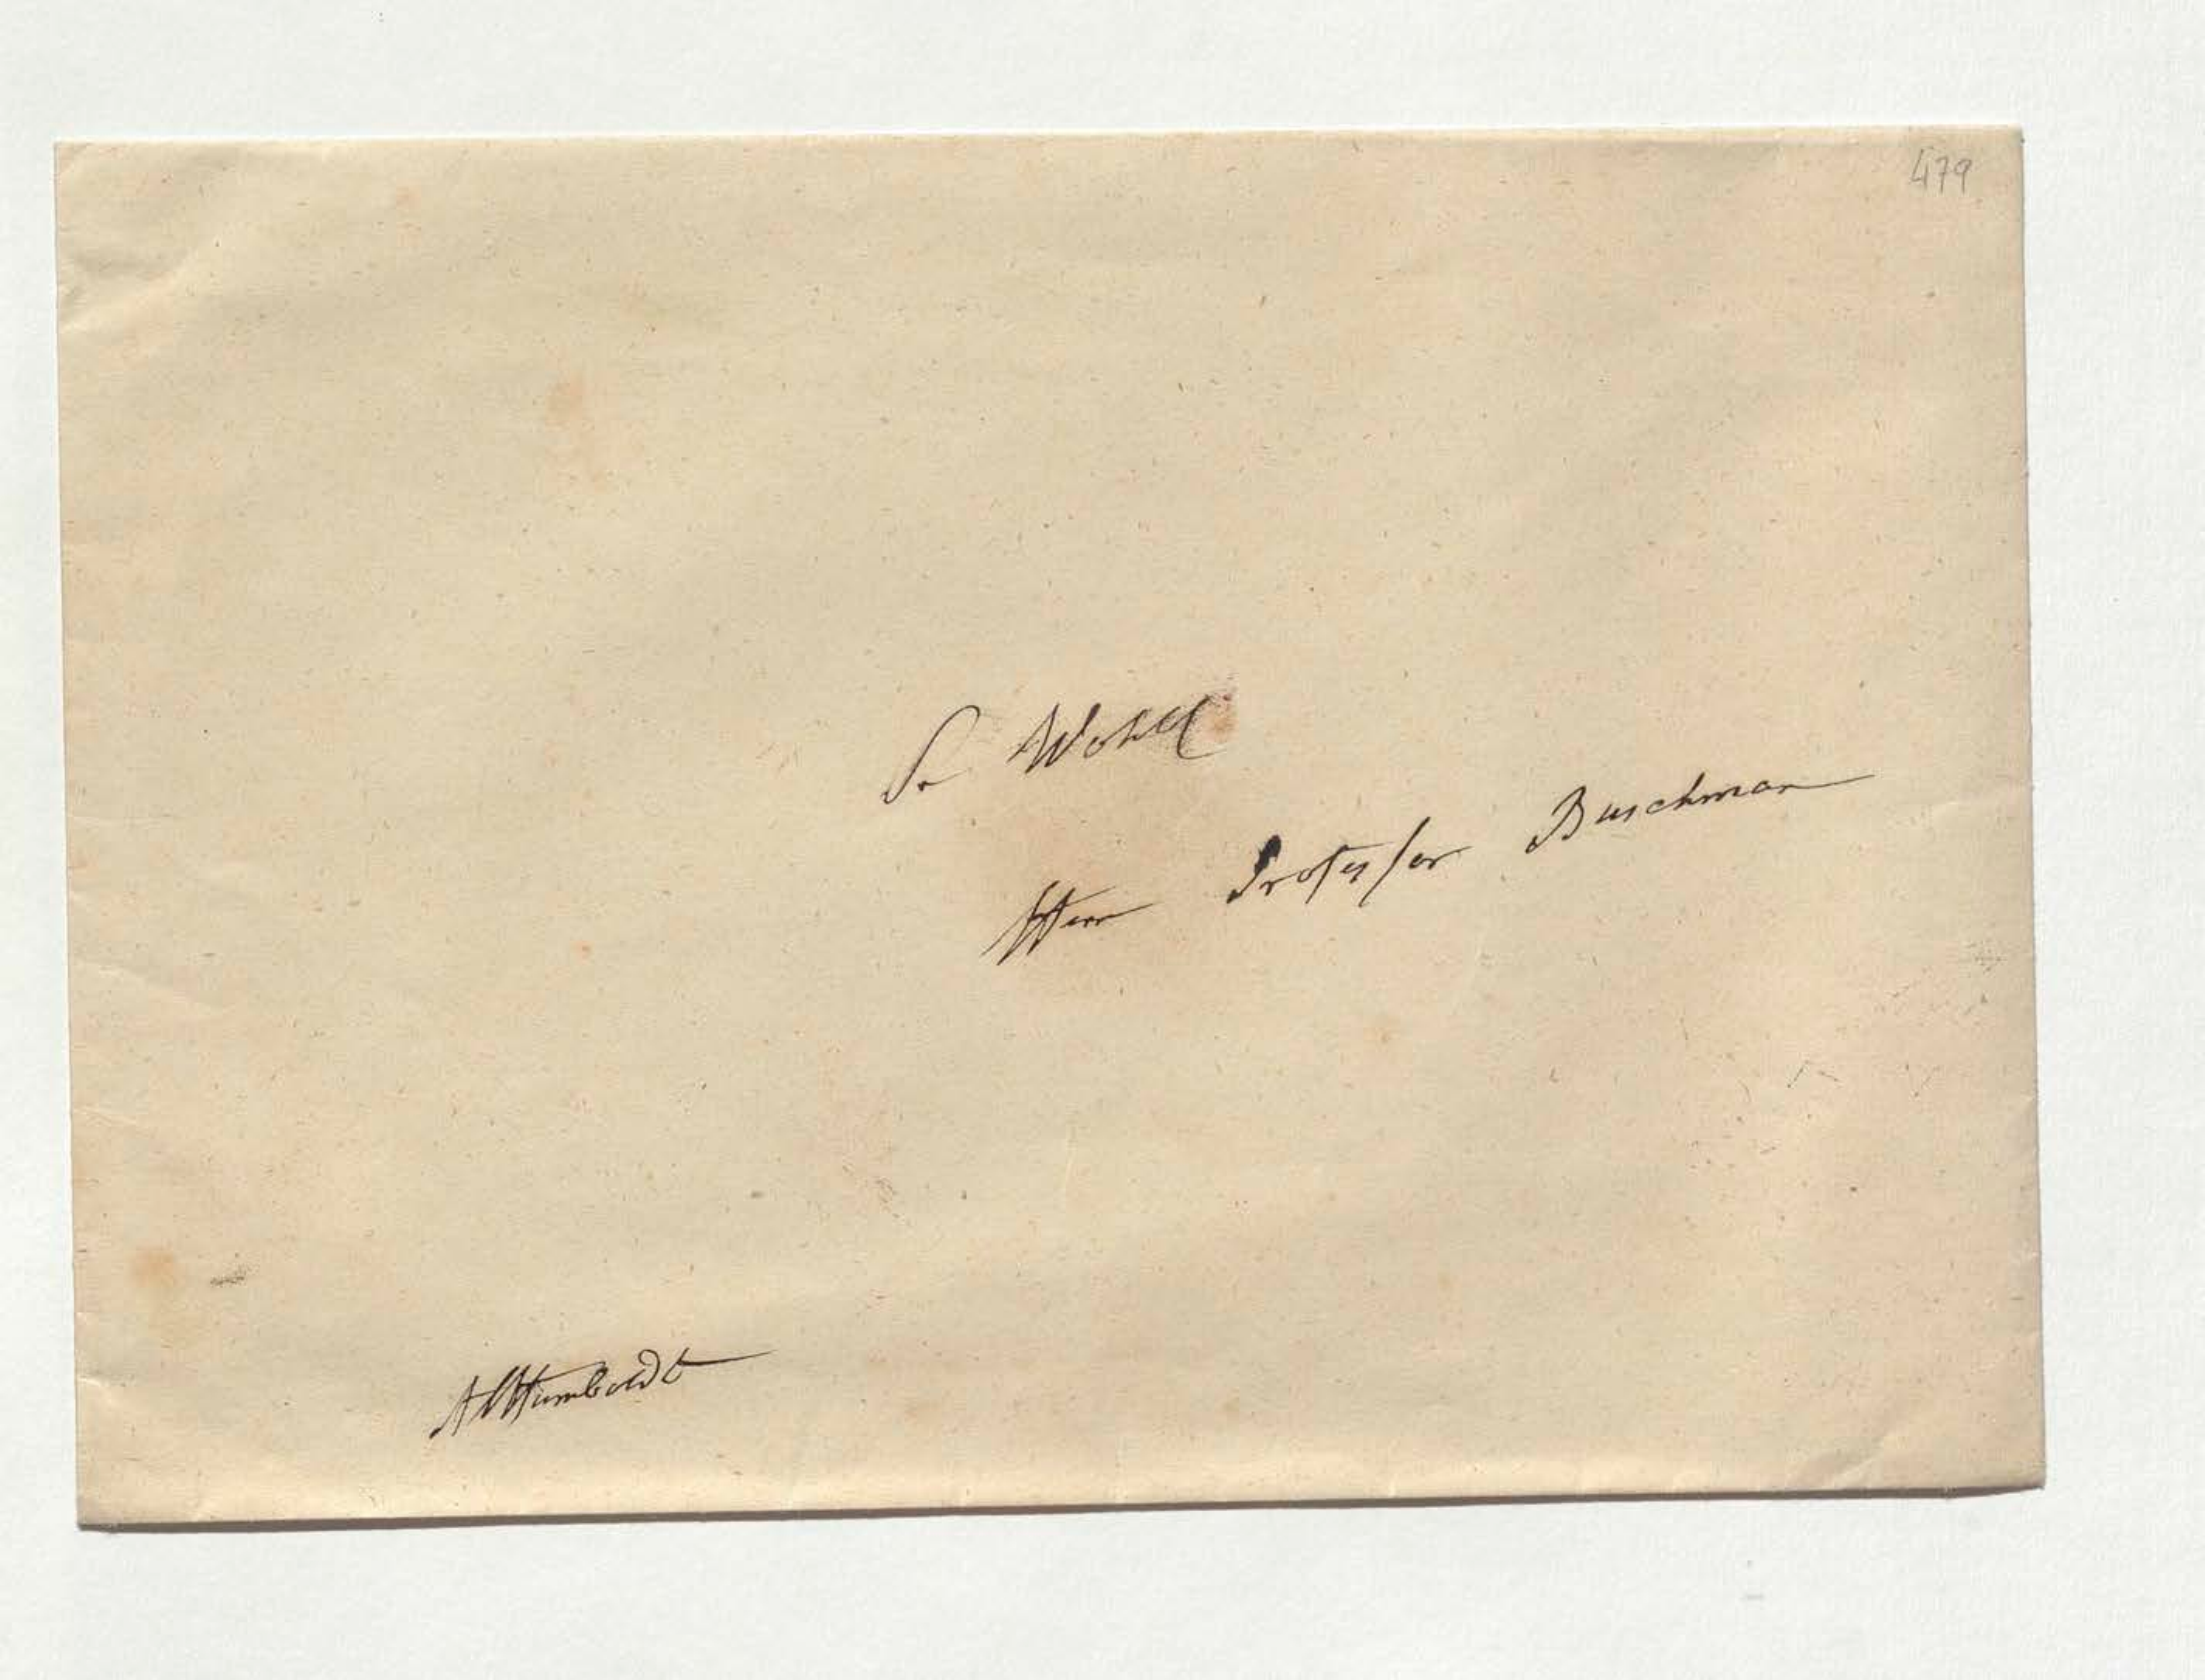 479
Sr Wohlg
Herr Professor Buschman
AlHumboldt